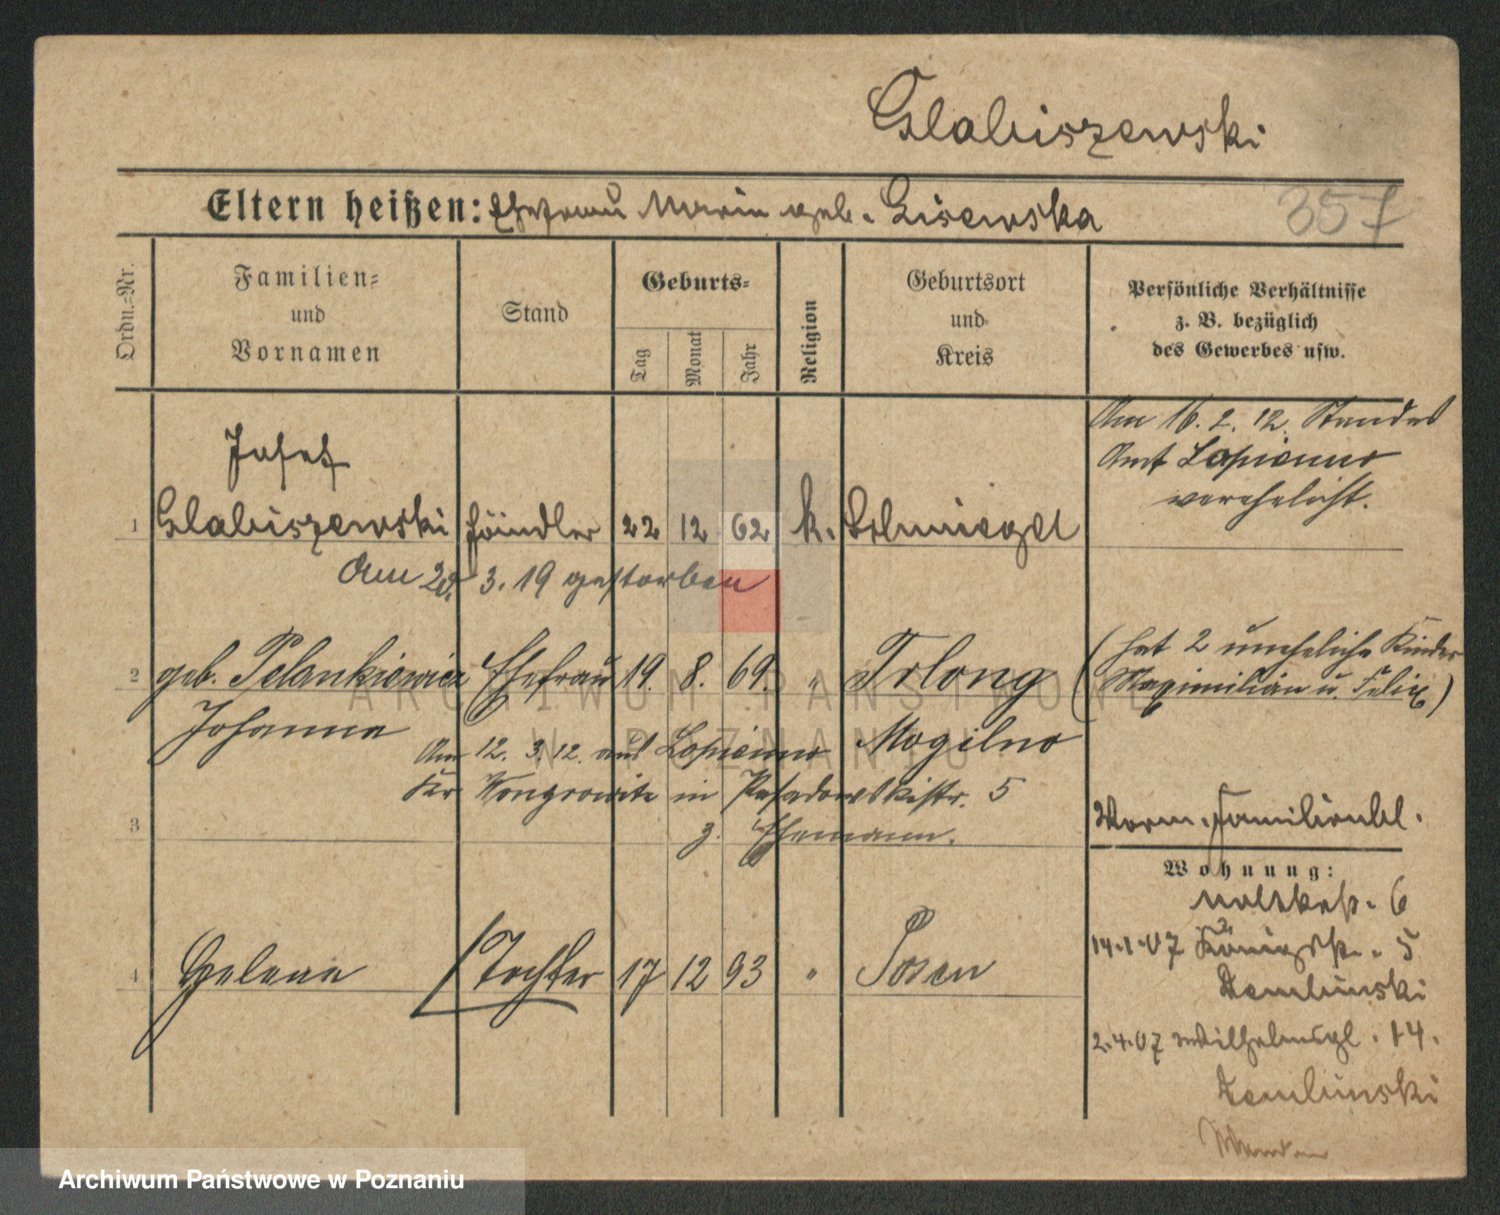 Glabiszewski
Eltern heißen: Ehefrau Maria geb. Lisewska
357
Ordn.-Nr.
Familien-
und
Vornamen
Stand
Geburts-
Tag
Monat
Jahr
Religion
Geburtsort
und
Kreis
Persönliche Verhältnisse
z. B. bezüglich
des Gewerbes usw.
Am 16. 2. 12. Standes
Amt Lopienno
verehelicht.
Josef
1 Glabiszewski Händler 22 12 62 k. Schmiegel
Am 3. 19 gestorben
2 geb. Pelankiewicz Ehefrau 19. 8. 69. " Trlong
Johanna
Mogilno
(hat 2 uneheliche Kinder
Maximilian u. Felix)
Am 12. 3. 12. aus Lopienno
Kr. Wongrowitz in Posadowskistr. 5
3 z. Ehemann.
Vorm. Familienbl.
Wohnung:
6
14.1.07 Königstr. 5
Dembinski
4 Helene Tochter 17 12 93 " Posen
2.4.07 Wilhelmspl. 14.
Dembinski
ARCHIWUM PAŃSTWOWE
W POZNANIU
Archiwum Państwowe w Poznaniu